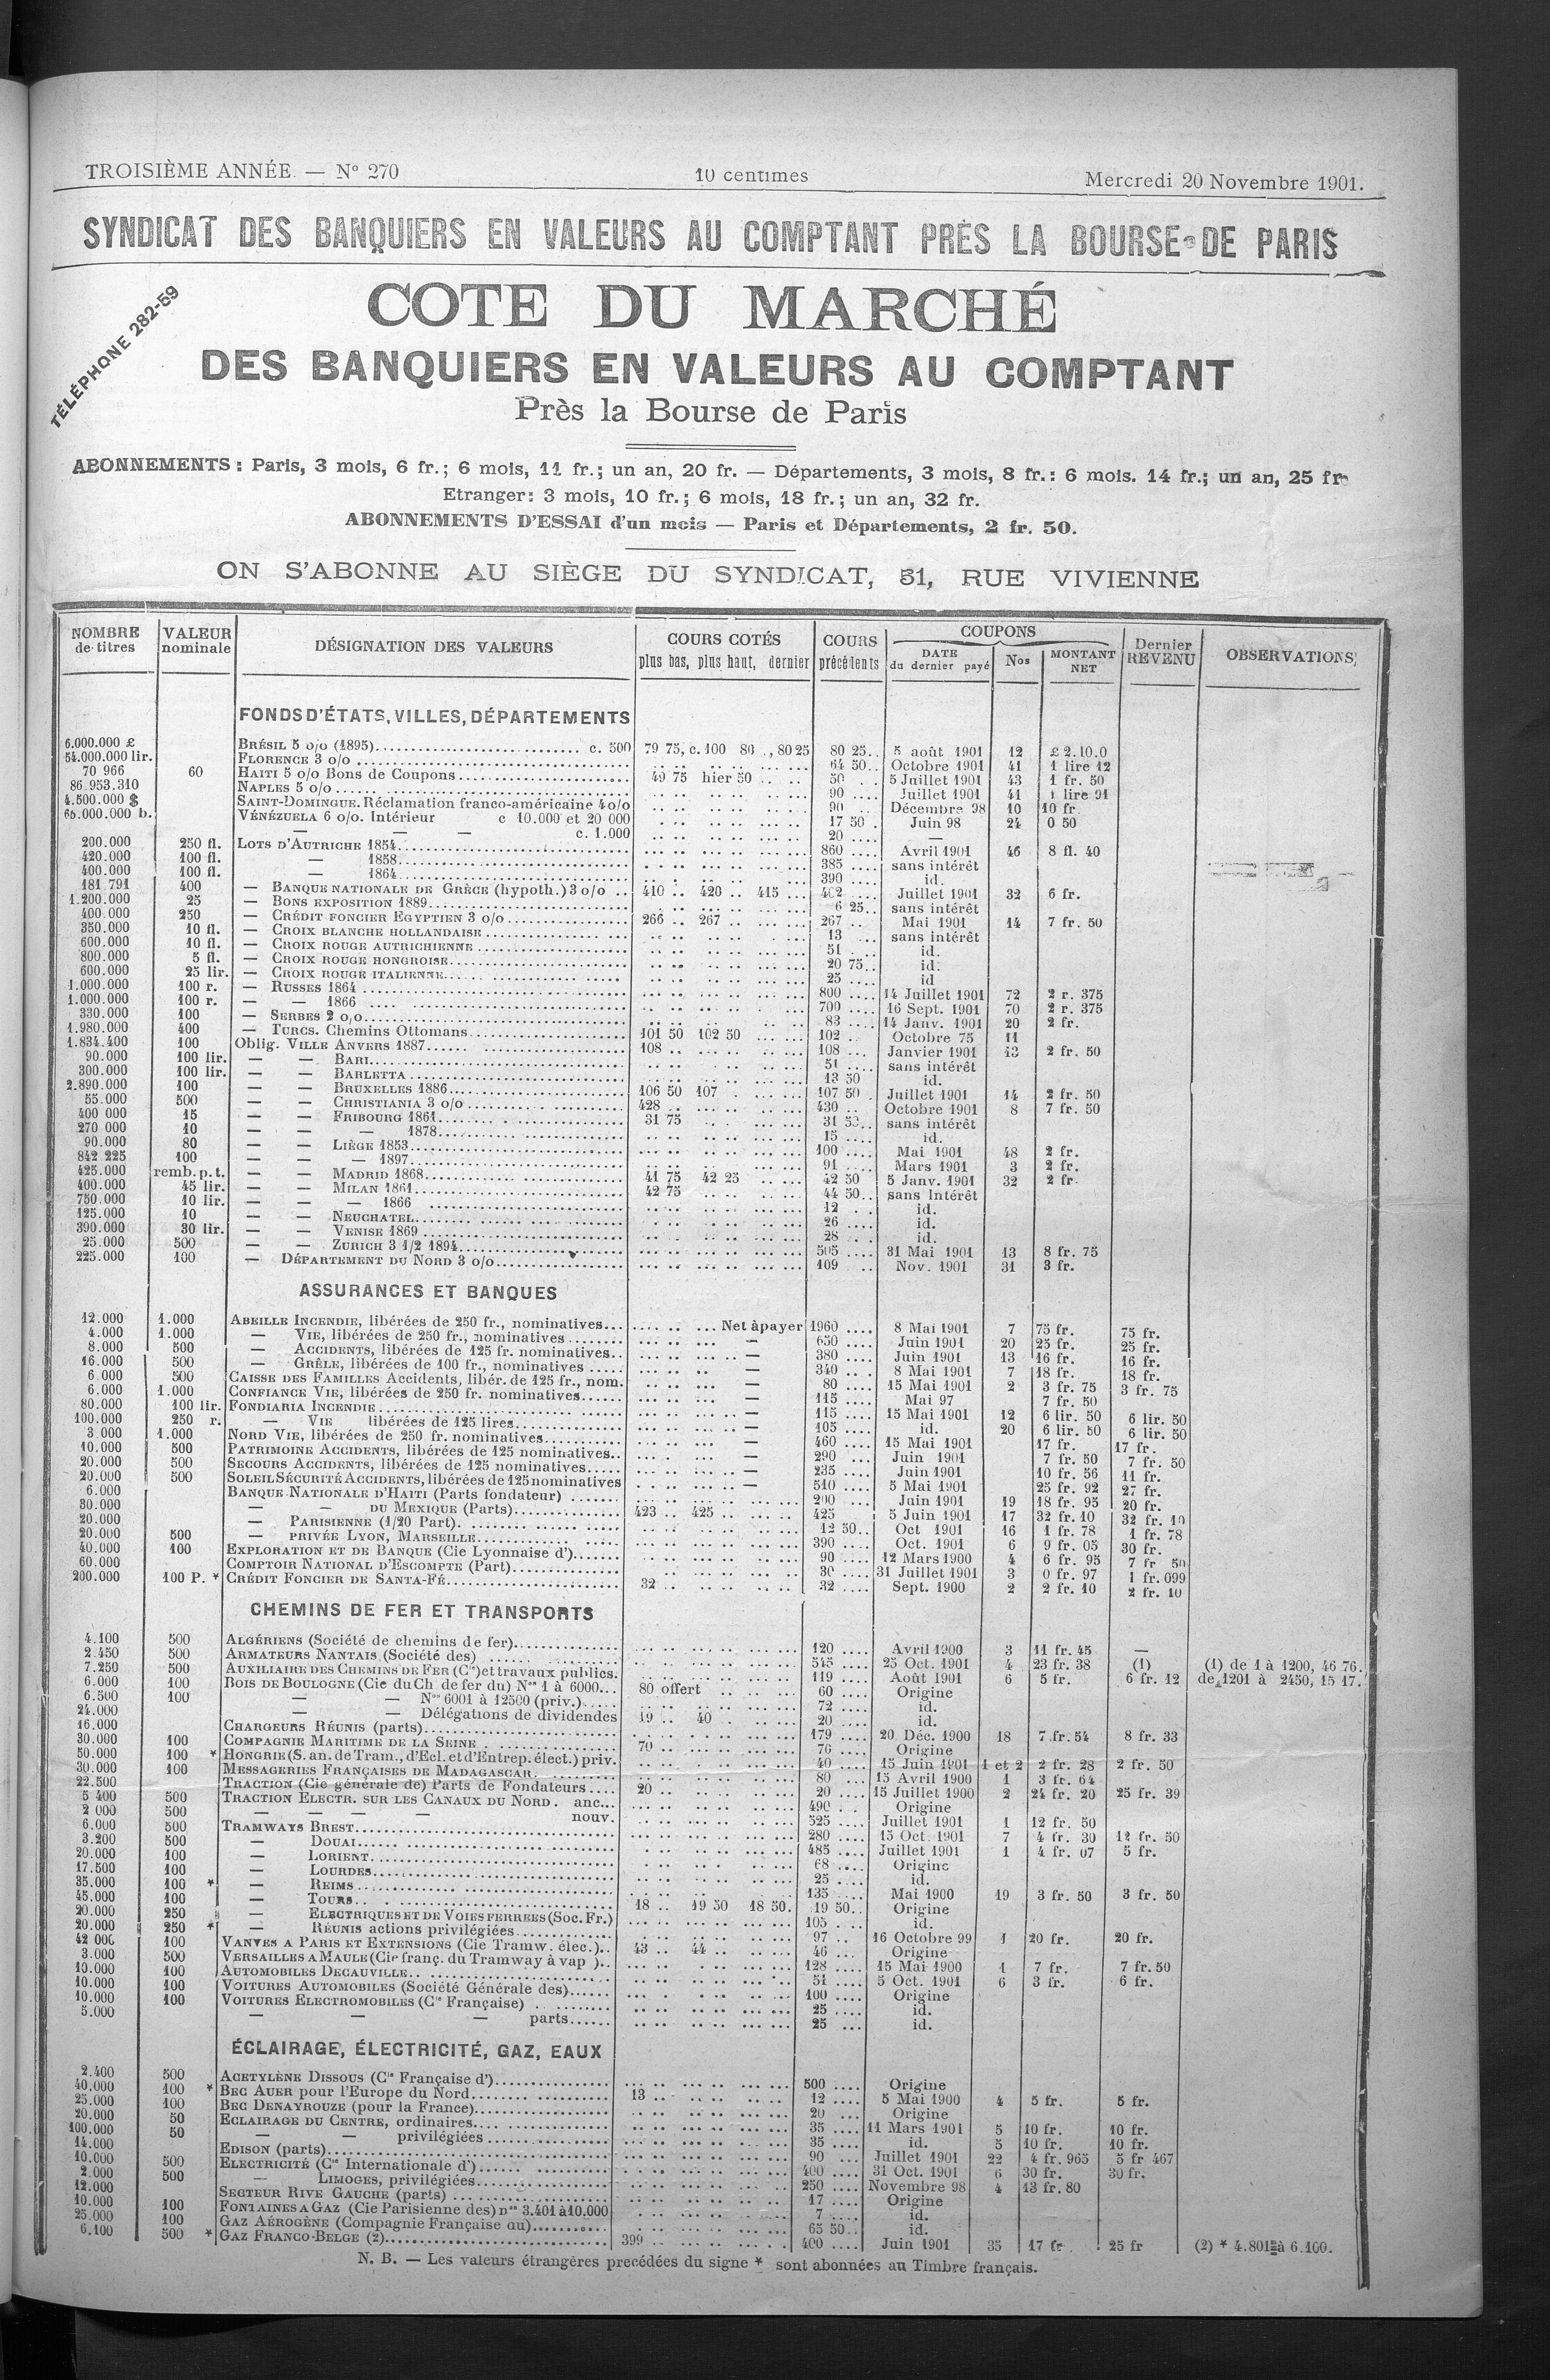 TROISIÈME ANNÉE. — N° 270 10 centimes Mercredi 20 Novembre 1901.
SYNDICAT DES BANQUIERS EN VALEURS AU COMPTANT PRÈS LA BOURSE DE PARIS
TÉLÉPHONE 282-59
COTE DU MARCHÉ
DES BANQUIERS EN VALEURS AU COMPTANT
Près la Bourse de Paris
ABONNEMENTS : Paris, 3 mois, 6 fr.; 6 mois, 11 fr.; un an, 20 fr. — Départements, 3 mois, 8 fr.: 6 mois. 14 fr.; un an, 25 fr
Etranger: 3 mois, 10 fr.; 6 mois, 18 fr.; un an, 32 fr.
ABONNEMENTS D'ESSAI d'un mois — Paris et Départements, 2 fr. 50.
ON S'ABONNE AU SIÈGE DU SYNDICAT, 31, RUE VIVIENNE
NOMBRE de titres VALEUR nominale DÉSIGNATION DES VALEURS COURS COTÉS plus bas, plus haut, dernier COURS précédents COUPONS DATE du dernier payé Nos MONTANT NET Dernier REVENU OBSERVATIONS
FONDS D'ÉTATS, VILLES, DÉPARTEMENTS
6.000.000 £ BRÉSIL 5 o/o (1895) c. 500 79 75, c. 100 80 .., 80 25 80 25 5 août 1901 12 £ 2.10.0
54.000.000 lir. FLORENCE 3 o/o 64 50 Octobre 1901 41 1 lire 12
70 966 60 HAITI 5 o/o Bons de Coupons 49 75 hier 50 50 5 Juillet 1901 43 1 fr. 50
86.953.310 NAPLES 5 o/o 90 Juillet 1901 41 1 lire 91
4.500.000 $ SAINT-DOMINGUE. Réclamation franco-américaine 4 o/o 90 Décembre 98 10 10 fr
65.000.000 b. VÉNÉZUELA 6 o/o. Intérieur c 10.000 et 20 000 17 50 Juin 98 24 0 50
— — — c. 1.000 20 —
200.000 250 fl. LOTS D'AUTRICHE 1854 860 Avril 1901 46 8 fl. 40
420.000 100 fl. — 1858 385 sans intérêt
400.000 100 fl. — 1864 390 id.
181 791 400 — BANQUE NATIONALE DE GRÈCE (hypoth.) 3 o/o 410 420 415 402 Juillet 1901 32 6 fr.
1.200.000 25 — BONS EXPOSITION 1889 6 25 sans intérêt
400.000 250 — CRÉDIT FONCIER EGYPTIEN 3 o/o 266 267 267 Mai 1901 14 7 fr. 50
350.000 10 fl. — CROIX BLANCHE HOLLANDAISE 13 sans intérêt
600.000 10 fl. — CROIX ROUGE AUTRICHIENNE 51 id.
800.000 5 fl. — CROIX ROUGE HONGROISE 20 75 id.
600.000 25 lir. — CROIX ROUGE ITALIENNE 25 id
1.000.000 100 r. — RUSSES 1864 800 14 Juillet 1901 72 2 r. 375
1.000.000 100 r. — — 1866 700 16 Sept. 1901 70 2 r. 375
330.000 100 — SERBES 2 o/o 83 14 Janv. 1901 20 2 fr.
1.980.000 400 — TURCS. Chemins Ottomans 101 50 102 50 102 Octobre 75 11
1.834.400 100 Oblig. VILLE ANVERS 1887 108 108 Janvier 1901 43 2 fr. 50
90.000 100 lir. — — BARI 51 sans intérêt
300.000 100 lir. — — BARLETTA 13 50 id.
2.890.000 100 — — BRUXELLES 1886 106 50 107 107 50 Juillet 1901 14 2 fr. 50
55.000 500 — — CHRISTIANIA 3 o/o 428 430 Octobre 1901 8 7 fr. 50
400 000 15 — — FRIBOURG 1861 31 75 31 sans intérêt
270 000 10 — — — 1878 15 id.
90.000 80 — — LIÈGE 1853 100 Mai 1901 48 2 fr.
842 225 100 — — — 1897 91 Mars 1901 3 2 fr.
425.000 remb. p. t. — — MADRID 1868 41 75 42 25 42 50 5 Janv. 1901 32 2 fr.
400.000 45 lir. — — MILAN 1861 42 75 44 50 sans Intérêt
750.000 10 lir. — — — 1866 12 id.
125.000 10 — — NEUCHATEL 26 id.
390.000 30 lir. — — VENISE 1869 28 id.
25.000 500 — — ZURICH 3 1/2 1894 505 31 Mai 1901 13 8 fr. 75
225.000 100 — DÉPARTEMENT DU NORD 3 o/o 109 Nov. 1901 31 3 fr.
ASSURANCES ET BANQUES
12.000 1.000 ABEILLE INCENDIE, libérées de 250 fr., nominatives Net à payer 1960 8 Mai 1901 7 75 fr. 75 fr.
4.000 1.000 — VIE, libérées de 250 fr., nominatives — 650 Juin 1901 20 25 fr. 25 fr.
8.000 500 — ACCIDENTS, libérées de 125 fr. nominatives — 380 Juin 1901 13 16 fr. 16 fr.
16.000 500 — GRÊLE, libérées de 100 fr., nominatives — 340 8 Mai 1901 7 18 fr. 18 fr.
6.000 500 CAISSE DES FAMILLES Accidents, libér. de 125 fr., nom. — 80 15 Mai 1901 2 3 fr. 75 3 fr. 75
6.000 1.000 CONFIANCE VIE, libérées de 250 fr. nominatives — 115 Mai 97 7 fr. 50
80.000 100 lir. FONDIARIA INCENDIE — 115 15 Mai 1901 12 6 lir. 50 6 lir. 50
100.000 250 r. — VIE libérées de 125 lires — 105 id. 20 6 lir. 50 6 lir. 50
3.000 1.000 NORD VIE, libérées de 250 fr. nominatives — 460 15 Mai 1901 17 fr. 17 fr.
10.000 500 PATRIMOINE ACCIDENTS, libérées de 125 nominatives — 290 Juin 1901 7 fr. 50 7 fr. 50
20.000 500 SECOURS ACCIDENTS, libérées de 125 nominatives — 235 Juin 1901 10 fr. 56 11 fr.
20.000 500 SOLEIL SÉCURITÉ ACCIDENTS, libérées de 125 nominatives — 510 5 Mai 1901 25 fr. 92 27 fr.
6.000 BANQUE NATIONALE D'HAITI (Parts fondateur) 200 Juin 1901 19 18 fr. 95 20 fr.
80.000 — — DU MEXIQUE (Parts) 423 425 425 5 Juin 1901 17 32 fr. 10 32 fr. 10
20.000 — PARISIENNE (1/20 Part) 12 50 Oct 1901 16 1 fr. 78 1 fr. 78
20.000 500 — PRIVÉE LYON, MARSEILLE 390 Oct. 1901 6 9 fr. 05 30 fr.
40.000 100 EXPLORATION ET DE BANQUE (Cie Lyonnaise d') 90 12 Mars 1900 4 6 fr. 95 7 fr 50
60.000 COMPTOIR NATIONAL D'ESCOMPTE (Part) 30 31 Juillet 1901 3 0 fr. 97 1 fr. 099
200.000 100 P. * CRÉDIT FONCIER DE SANTA-FÉ 32 32 Sept. 1900 2 2 fr. 10 2 fr. 10
CHEMINS DE FER ET TRANSPORTS
4.100 500 ALGÉRIENS (Société de chemins de fer) 120 Avril 1900 3 11 fr. 45 —
2.450 500 ARMATEURS NANTAIS (Société des) 515 25 Oct. 1901 4 23 fr. 38 (1) (1) de 1 à 1200, 46 76.
7.250 500 AUXILIAIRE DES CHEMINS DE FER (Cie) et travaux publics. 119 Août 1901 6 5 fr. 6 fr. 12 de 1201 à 2450, 15 17.
6.000 100 BOIS DE BOULOGNE (Cie du Ch. de fer du) Nos 1 à 6000 80 offert 60 Origine
6.500 100 — — Nos 6001 à 12500 (priv.) 72 id.
24.000 — — Délégations de dividendes 19 40 20 id.
16.000 CHARGEURS RÉUNIS (parts) 179 20 Déc. 1900 18 7 fr. 54 8 fr. 33
30.000 100 COMPAGNIE MARITIME DE LA SEINE 70 76 Origine
50.000 100 * HONGRIE (S. an. de Tram., d'Ecl. et d'Entrep. élect.) priv. 40 15 Juin 1901 1 et 2 2 fr. 28 2 fr. 50
30.000 100 MESSAGERIES FRANÇAISES DE MADAGASCAR 80 15 Avril 1900 1 3 fr. 64
22.500 TRACTION (Cie générale de) Parts de Fondateurs 20 20 15 Juillet 1900 2 24 fr. 20 25 fr. 39
5 400 500 TRACTION ELECTR. SUR LES CANAUX DU NORD. anc... 490 Origine
2 000 500 — — — — nouv. 525 Juillet 1901 1 12 fr. 50
6.000 500 TRAMWAYS BREST 280 15 Oct. 1901 7 4 fr. 30 12 fr. 50
3.200 500 — DOUAI 485 Juillet 1901 1 4 fr. 07 5 fr.
20.000 100 — LORIENT 68 Origine
17.500 100 — LOURDES 25 id.
35.000 100 * — REIMS 135 Mai 1900 19 3 fr. 50 3 fr. 50
45.000 100 — TOURS 18 19 50 18 50. 19 50 Origine
20.000 250 — ELECTRIQUES ET DE VOIES FERREES (Soc. Fr.) 105 id.
20.000 250 * — RÉUNIS actions privilégiées 97 16 Octobre 99 1 20 fr. 20 fr.
42 000 100 VANVES A PARIS ET EXTENSIONS (Cie Tramw. élec.) 43 44 46 Origine
3.000 500 VERSAILLES A MAULE (Cie franç. du Tramway à vap ) 128 15 Mai 1900 1 7 fr. 7 fr. 50
10.000 100 AUTOMOBILES DECAUVILLE 51 5 Oct. 1901 6 3 fr. 6 fr.
10.000 100 VOITURES AUTOMOBILES (Société Générale des) 100 Origine
10.000 100 VOITURES ELECTROMOBILES (Cie Française) 25 id.
5.000 — — — parts 25 id.
ÉCLAIRAGE, ÉLECTRICITÉ, GAZ, EAUX
2.400 500 ACETYLÈNE DISSOUS (Cie Française d') 500 Origine
40.000 100 * BEC AUER pour l'Europe du Nord 13 12 5 Mai 1900 4 5 fr. 5 fr.
25.000 100 BEC DENAYROUZE (pour la France) 20 Origine
20.000 50 ECLAIRAGE DU CENTRE, ordinaires 35 11 Mars 1901 5 10 fr. 10 fr.
100.000 50 — — privilégiées 35 id. 5 10 fr. 10 fr.
14.000 EDISON (parts) 90 Juillet 1901 22 4 fr. 965 5 fr 467
10.000 500 ELECTRICITÉ (Cie Internationale d') 400 31 Oct. 1901 6 30 fr. 30 fr.
2.000 500 — LIMOGES, privilégiées 250 Novembre 98 4 13 fr. 80
12.000 SECTEUR RIVE GAUCHE (parts) 17 Origine
10.000 100 FONTAINES A GAZ (Cie Parisienne des) nos 3.401 à 10.000 7 id.
25.000 100 GAZ AÉROGÈNE (Compagnie Française du) 65 50 id.
6.100 500 * GAZ FRANCO-BELGE (2) 399 400 Juin 1901 35 17 fr. 25 fr (2) * 4.801 à 6.100.
N. B. — Les valeurs étrangères precédées du signe * sont abonnées au Timbre français.